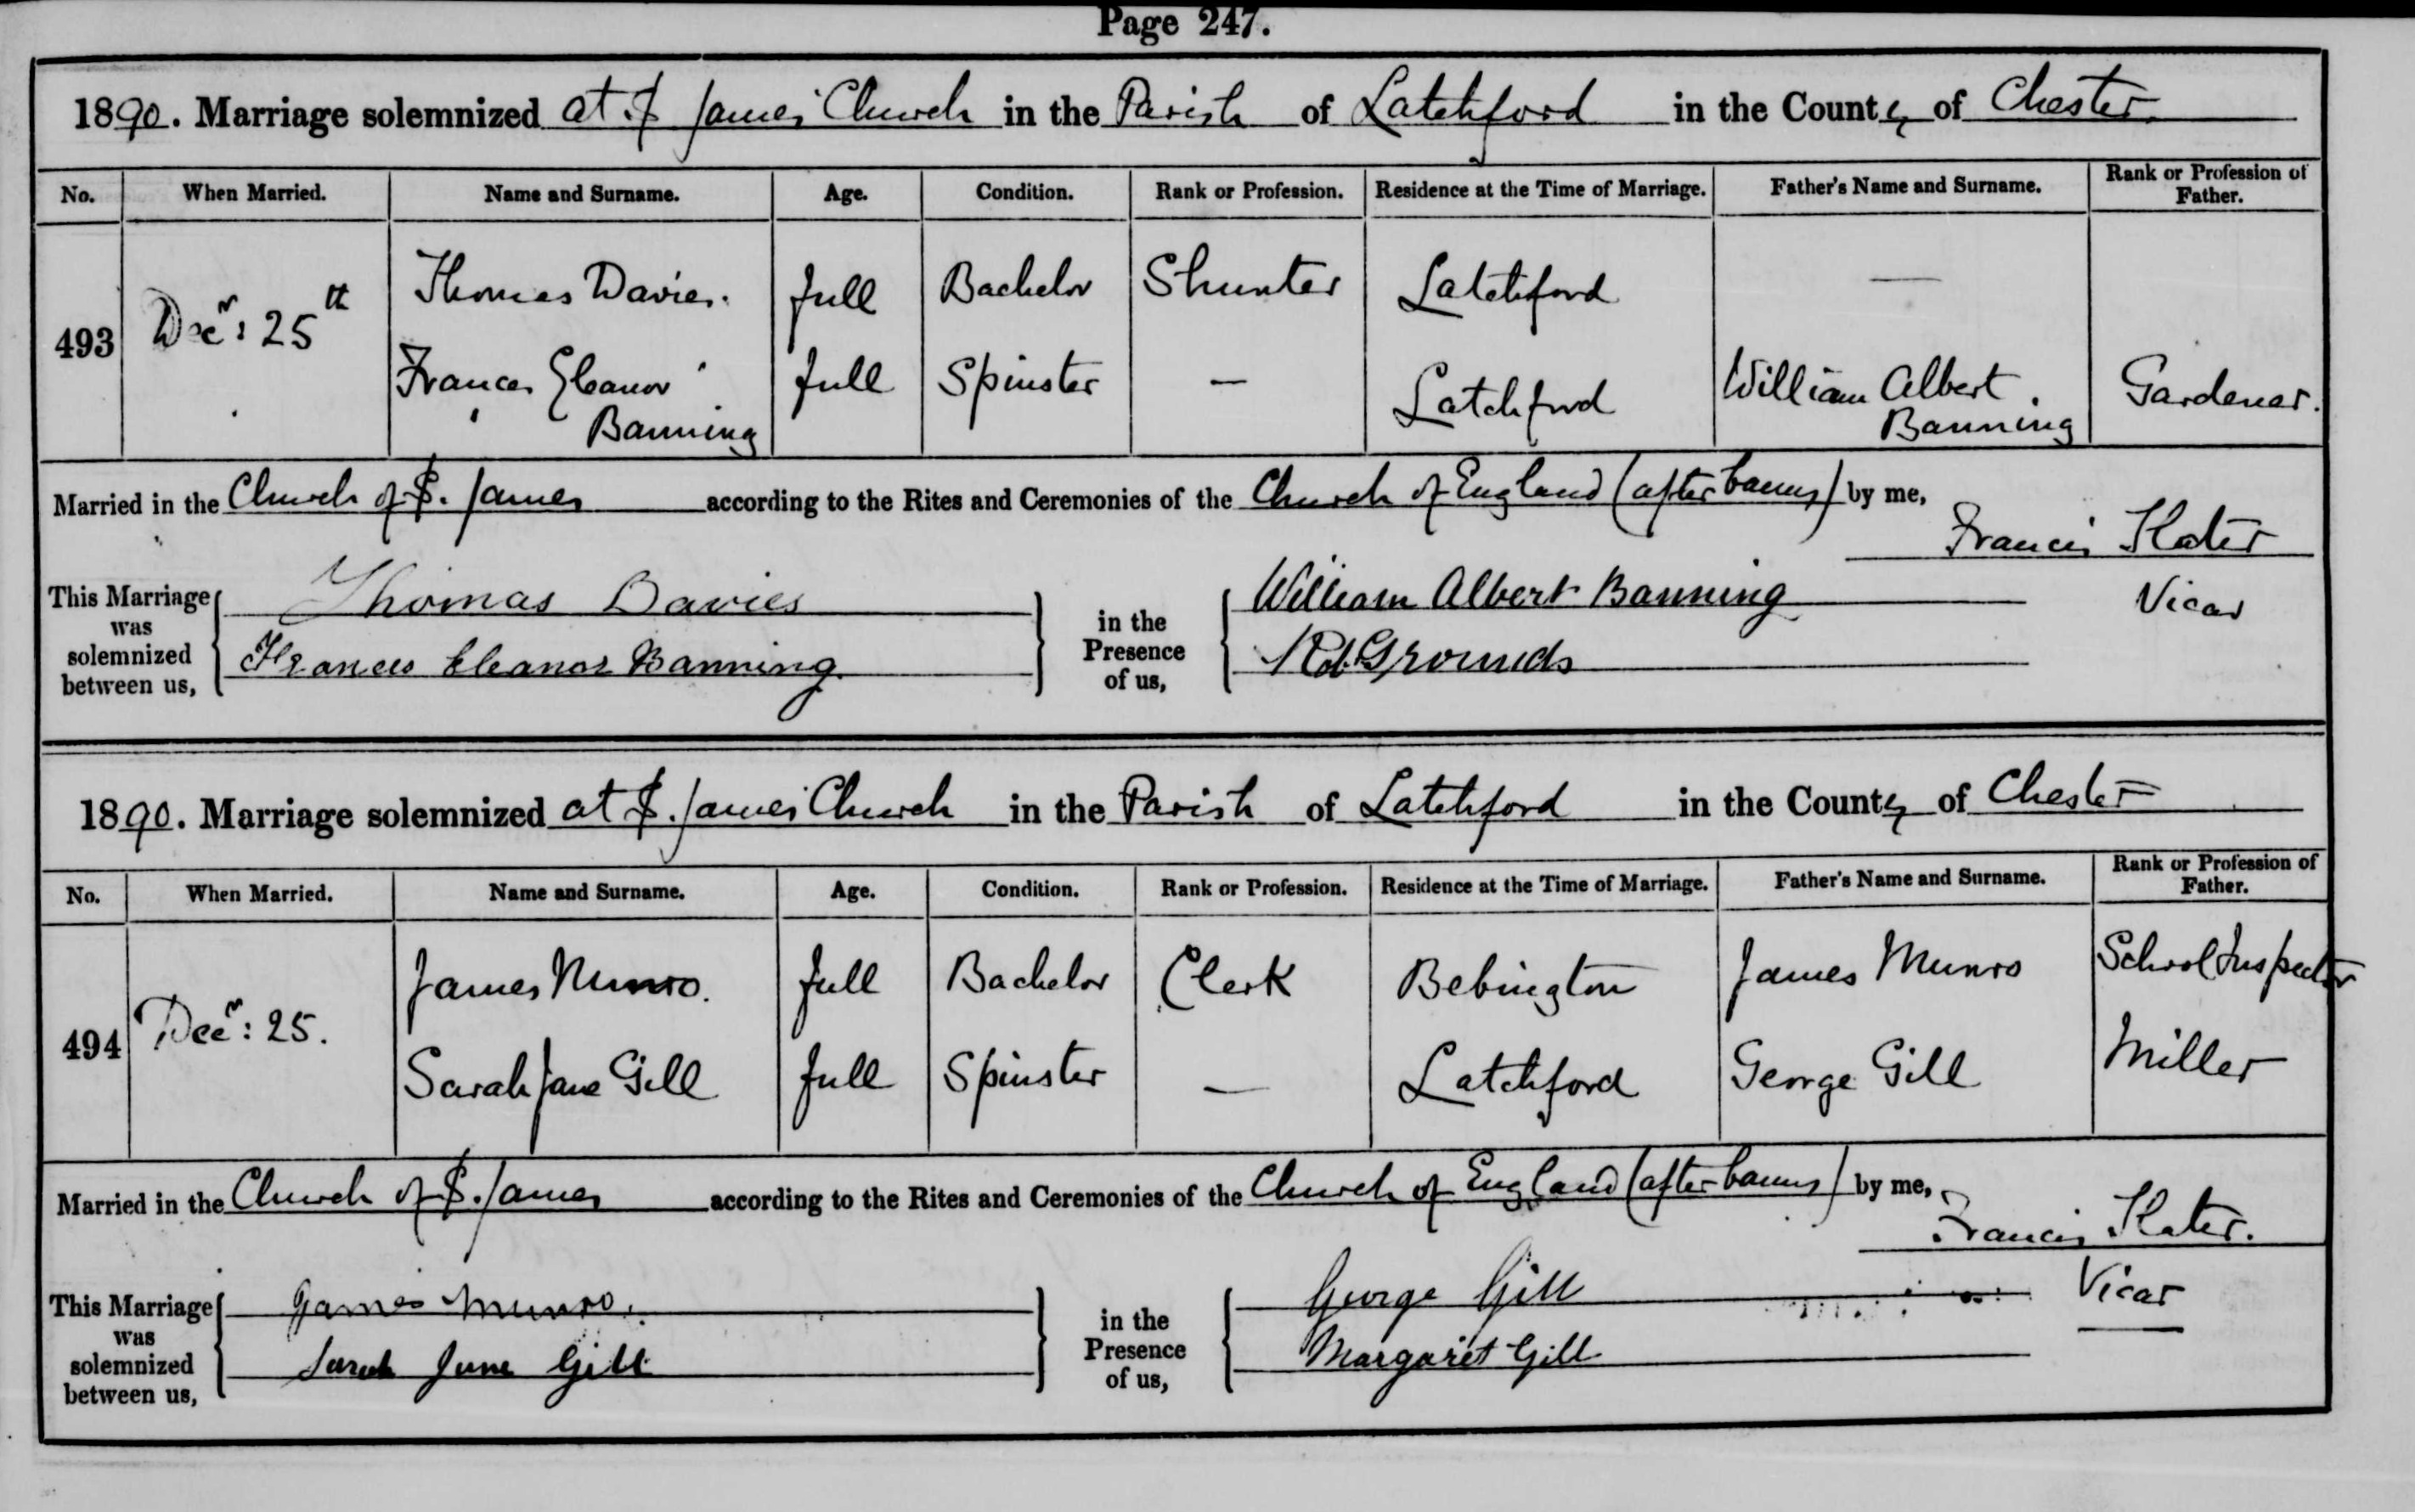 Page 247.
1890. Marriage solemnized at St James' Church in the Parish of Latchford in the County of Chester.
No. When Married. Name and Surname. Age. Condition. Rank or Profession. Residence at the Time of Marriage. Father's Name and Surname. Rank or Profession of Father.
493 Decr: 25th Thomas Davies. full Bachelor Shunter Latchford —
Frances Eleanor Banning full Spinster — Latchford William Albert Banning Gardener.
Married in the Church of St. James according to the Rites and Ceremonies of the Church of England (after banns) by me,
Francis Slater
Vicar
This Marriage was solemnized between us, Thomas Davies in the Presence of us, William Albert Banning
Frances Eleanor Banning Grounds
1890. Marriage solemnized at St. James' Church in the Parish of Latchford in the County of Chester
No. When Married. Name and Surname. Age. Condition. Rank or Profession. Residence at the Time of Marriage. Father's Name and Surname. Rank or Profession of Father.
494 Decr: 25. James Munro. full Bachelor Clerk Bebington James Munro School Inspector
Sarah Jane Gill full Spinster — Latchford George Gill Miller
Married in the Church of St. James according to the Rites and Ceremonies of the Church of England (after banns) by me,
Francis Slater.
Vicar
This Marriage was solemnized between us, James Munro. in the Presence of us, George Gill
Sarah Jane Gill Margaret Gill